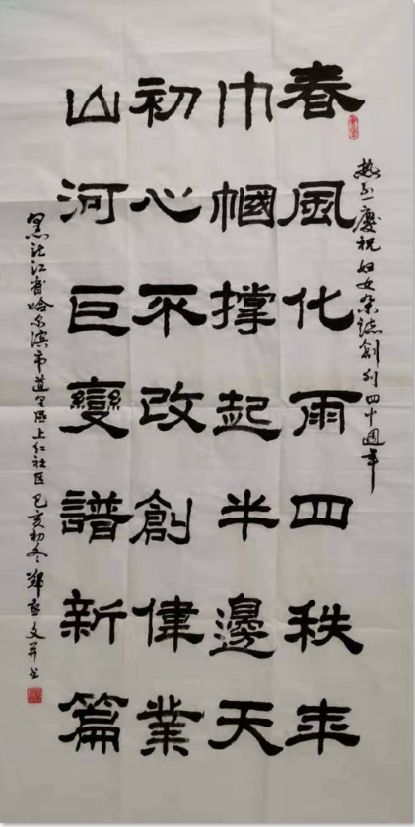 热烈慶祝妇女杂誌創刊四十週年
春風化雨四秩年
巾幗撑起半邊天
初心不改創偉業
山河巨變譜新篇
黑龙江省哈尔滨市道里區上红社區 己亥初冬 郑文并书